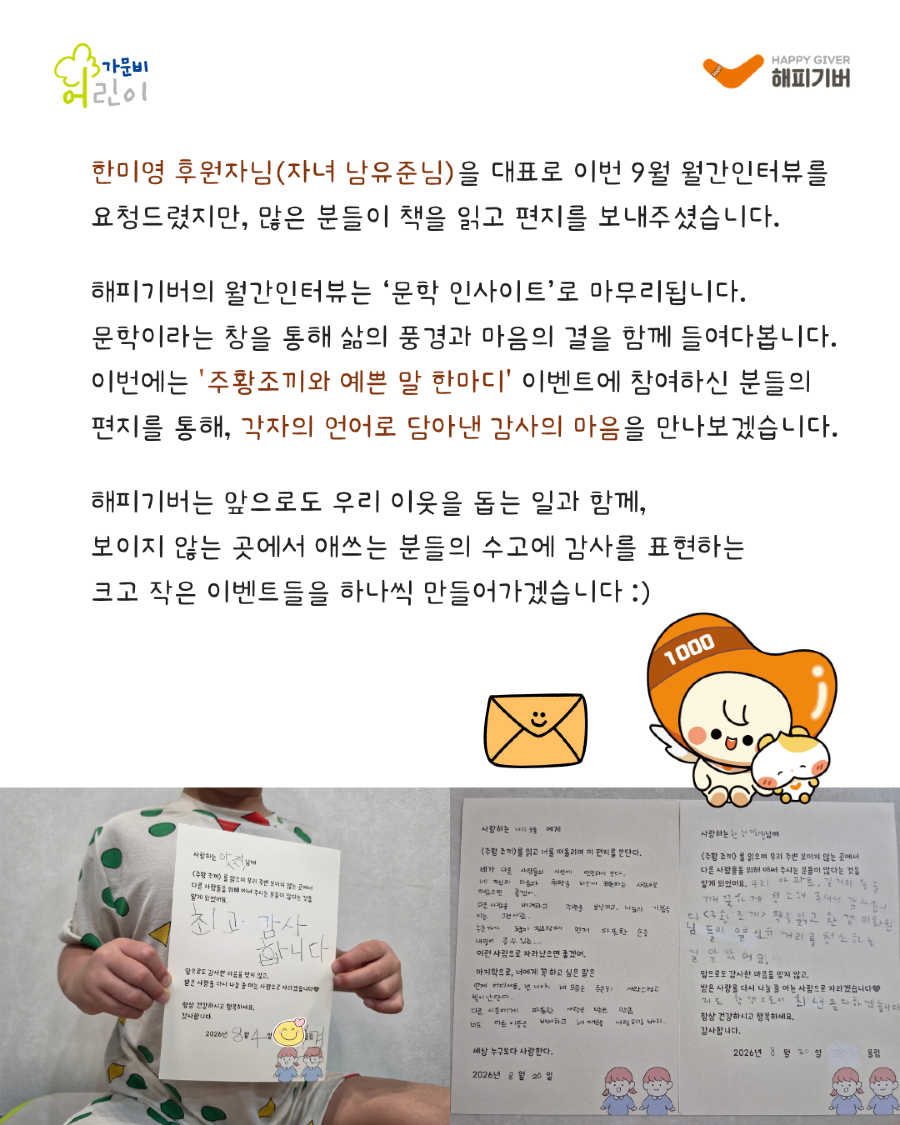 가문비
어린이
HAPPY GIVER
해피기버
한미영 후원자님(자녀 남유준님)을 대표로 이번 9월 월간인터뷰를
요청드렸지만, 많은 분들이 책을 읽고 편지를 보내주셨습니다.
해피기버의 월간인터뷰는 ‘문학 인사이트’로 마무리됩니다.
문학이라는 창을 통해 삶의 풍경과 마음의 결을 함께 들여다봅니다.
이번에는 '주황조끼와 예쁜 말 한마디' 이벤트에 참여하신 분들의
편지를 통해, 각자의 언어로 담아낸 감사의 마음을 만나보겠습니다.
해피기버는 앞으로도 우리 이웃을 돕는 일과 함께,
보이지 않는 곳에서 애쓰는 분들의 수고에 감사를 표현하는
크고 작은 이벤트들을 하나씩 만들어가겠습니다 :)
1000
사랑하는 님께
《주황 조끼》를 읽으며 우리 주변 보이지 않는 곳에서
다른 사람들을 위해 애써 주시는 분들이 많다는 것을
알게 되었어요.
최고 감사
합니다
앞으로도 감사한 마음을 잊지 않고,
받은 사랑을 다시 나눌 줄 아는 사람으로 자라겠습니다♥
항상 건강하시고 행복하세요.
감사합니다.
2026년 8월 4일
사랑하는 에게
《주황 조끼》를 읽고 너를 떠올리며 이 편지를 쓴단다.
이런 사람으로 자라났으면 좋겠어.
마지막으로, 너에게 꼭 하고 싶은 말은
세상 누구보다 사랑한다.
2026년 8월 20일
사랑하는 님께
《주황 조끼》를 읽으며 우리 주변 보이지 않는 곳에서
다른 사람들을 위해 애써 주시는 분들이 많다는 것을
알게 되었어요. 우리 아파트, 길거리 등을
깨끗하게 청소해 주셔서 감사합니
다 《주황 조끼》 책을 읽고 환경미화원
님들이 열심히 거리를 청소하는
걸 알았어요.
앞으로도 감사한 마음을 잊지 않고,
받은 사랑을 다시 나눌 줄 아는 사람으로 자라겠습니다♥
저도 학생으로서 최선을 다하겠습니다
항상 건강하시고 행복하세요.
감사합니다.
2026년 8월 20일 올림